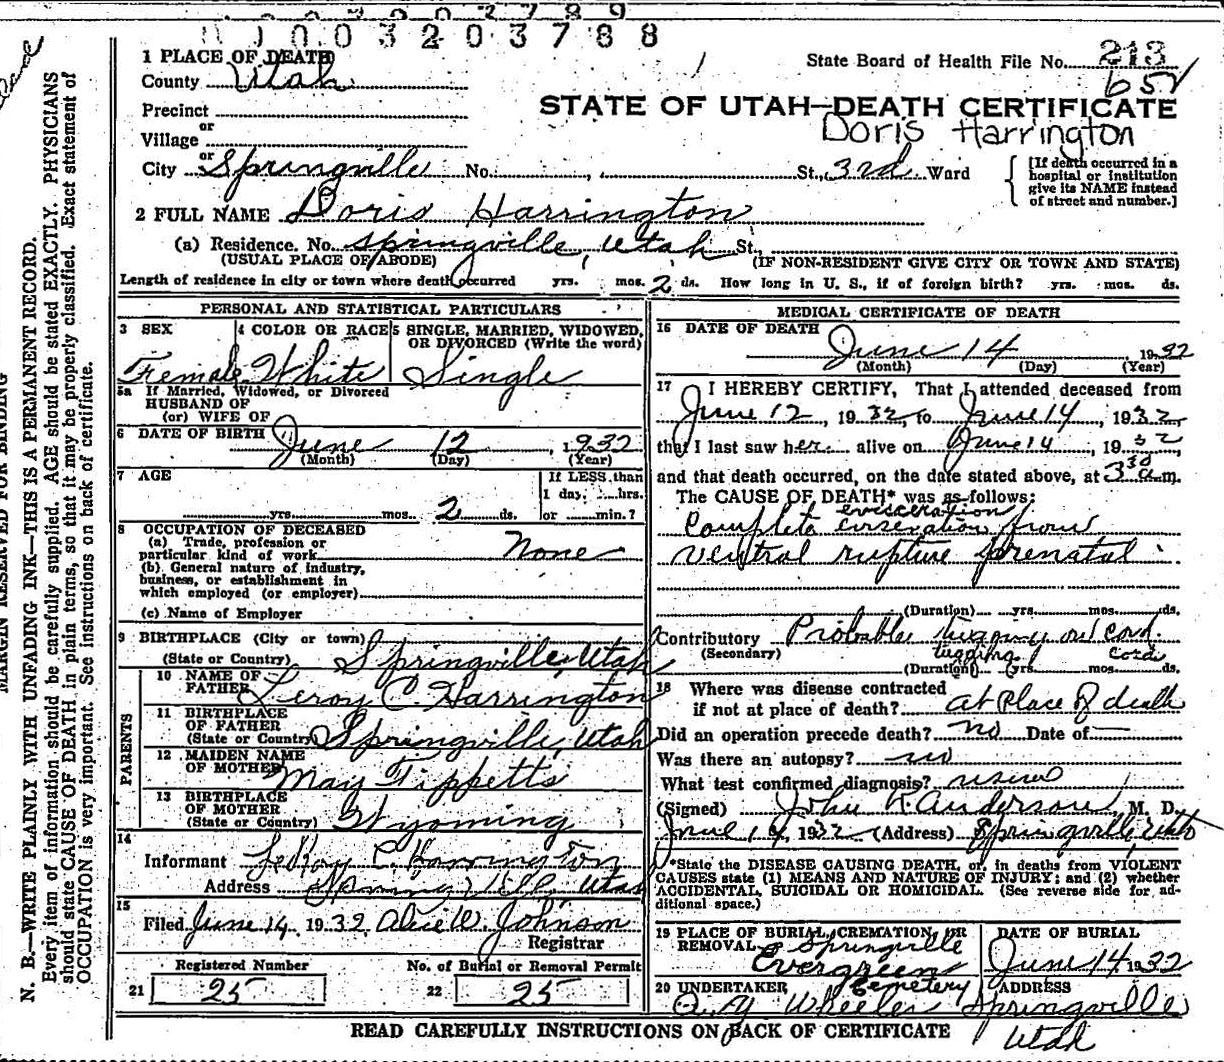 0 0 0 3 2 0 3 7 8 8
1 PLACE OF DEATH
County Utah
State Board of Health File No. 213
652
Precinct
STATE OF UTAH—DEATH CERTIFICATE
Doris Harrington
or
Village
or
City Springville No. St., 3rd Ward
[If death occurred in a
hospital or institution
give its NAME instead
of street and number.]
2 FULL NAME Doris Harrington
(a) Residence. No. Springville, Utah St.,
(USUAL PLACE OF ABODE) (IF NON-RESIDENT GIVE CITY OR TOWN AND STATE)
Length of residence in city or town where death occurred yrs. mos. 2 ds. How long in U. S., if of foreign birth? yrs. mos. ds.
PERSONAL AND STATISTICAL PARTICULARS
3 SEX 4 COLOR OR RACE 5 SINGLE, MARRIED, WIDOWED,
OR DIVORCED (Write the word)
Female White Single
5a If Married, Widowed, or Divorced
HUSBAND OF
(or) WIFE OF
6 DATE OF BIRTH June 12, 1932
(Month) (Day) (Year)
7 AGE If LESS than
1 day, hrs.
yrs. mos. 2 ds. or min.?
8 OCCUPATION OF DECEASED
(a) Trade, profession or
particular kind of work None
(b) General nature of industry,
business, or establishment in
which employed (or employer)
(c) Name of Employer
9 BIRTHPLACE (City or town)
(State or Country) Springville, Utah
PARENTS
10 NAME OF
FATHER Leroy C. Harrington
11 BIRTHPLACE
OF FATHER
(State or Country) Springville, Utah
12 MAIDEN NAME
OF MOTHER May Tippetts
13 BIRTHPLACE
OF MOTHER
(State or Country) Wyoming
14
Informant LeRoy C. Harrington
Address Springville, Utah
15
Filed June 14, 1932 Alice W. Johnson
Registrar
Registered Number No. of Burial or Removal Permit
21 25 22 25
MEDICAL CERTIFICATE OF DEATH
16 DATE OF DEATH
June 14 1932
(Month) (Day) (Year)
17 I HEREBY CERTIFY, That I attended deceased from
June 12, 1932, to June 14, 1932
that I last saw her alive on June 14, 1932
and that death occurred, on the date stated above, at 3 30 a.m.
The CAUSE OF DEATH* was as follows:
evisceration
Complete from
ventral rupture prenatal
(Duration) yrs. mos. ds.
Contributory Probable tugging on cord.
(Secondary) tugging cord
(Duration) yrs. mos. ds.
18 Where was disease contracted
if not at place of death? at Place of death
Did an operation precede death? no Date of —
Was there an autopsy? no
What test confirmed diagnosis?
(Signed) John R. Anderson, M. D.
June 14, 1932 (Address) Springville Utah
*State the DISEASE CAUSING DEATH, or, in deaths from VIOLENT
CAUSES state (1) MEANS AND NATURE OF INJURY; and (2) whether
ACCIDENTAL, SUICIDAL OR HOMICIDAL. (See reverse side for ad-
ditional space.)
19 PLACE OF BURIAL, CREMATION, OR
REMOVAL Springville
Evergreen
Cemetery
DATE OF BURIAL
June 14 1932
20 UNDERTAKER ADDRESS
A. Y. Wheeler Springville
Utah
READ CAREFULLY INSTRUCTIONS ON BACK OF CERTIFICATE
MARGIN RESERVED FOR BINDING
N. B.—WRITE PLAINLY WITH UNFADING INK—THIS IS A PERMANENT RECORD.
Every item of information should be carefully supplied. AGE should be stated EXACTLY. PHYSICIANS
should state CAUSE OF DEATH in plain terms, so that it may be properly classified. Exact statement of
OCCUPATION is very important. See instructions on back of certificate.